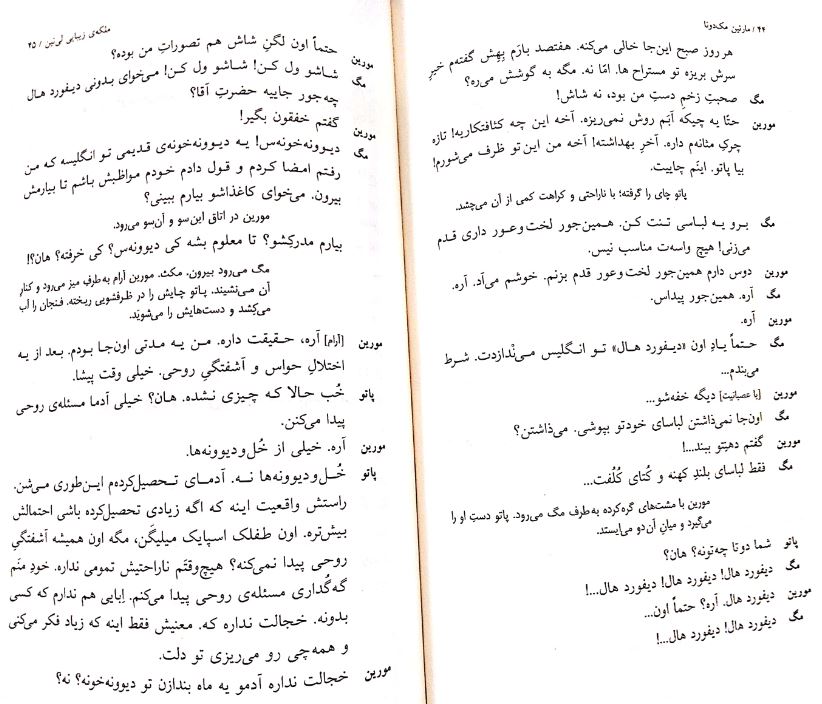 ۴۴ / مارتین مک‌دونا
هر روز صبح این‌جا خالی می‌کنه. هفتصد بازم بِهِش گفته‌م خیرِ
سرش بریزه تو مستراح ها. امّا نه. مگه به گوشش می‌ره؟
مگ صحبتِ زخمِ دستِ من بود، نه شاش!
مورین حتّا یه چیکه آبَم روش نمی‌ریزه. آخه این چه کثافتکاریه! تازه
چرکِ مثانه‌م داره. آخرِ بهداشته! آخه من این‌تو ظرف می‌شورم!
بیا پاتو. اینَم چاییت.
پاتو چای را گرفته؛ با ناراحتی و کراهت کمی از آن می‌چشد.
مگ برو یه لباسی تنت کن. همین‌جور لخت‌وعور داری قدم
می‌زنی! هیچ واسه‌ت مناسب نیس.
مورین دوس دارم همین‌جور لخت‌وعور قدم بزنم. خوشم می‌آد. آره.
مگ آره. همین‌جور پیداس.
مورین آره.
مگ حتماً یادِ اون «دیفورد هال» تو انگلیس می‌نْدازدت. شرط
می‌بندم...
مورین [با عصبانیت] دیگه خفه‌شو...
مگ اون‌جا نمی‌ذاشتن لباسای خودتو بپوشی. می‌ذاشتن؟
مورین گفتم دهنِتو ببند...!
مگ فقط لباسای بلندِ کهنه و کُتای کُلُفت...
مورین با مشت‌های گره‌کرده به‌طرف مگ می‌رود. پاتو دستِ او را
می‌گیرد و میانِ آن‌دو می‌ایستد.
پاتو شما دوتا چه‌تونه؟ هان؟
مگ دیفورد هال! دیفورد هال! دیفورد هال...!
مورین دیفورد هال. آره؟ حتماً اون...
مگ دیفورد هال! دیفورد هال...!
ملکه‌ی زیبایی لی‌نین / ۴۵
حتماً اون لگنِ شاش هم تصوراتِ من بوده؟
مورین شاشو ول کن! شاشو ول کن! می‌خوای بدونی دیفورد هال
مگ چه‌جور جاییه حضرتِ آقا؟
گفتم خفقون بگیر!
مورین دیوونه‌خونه‌س! یه دیوونه‌خونه‌ی قدیمی تو انگلیسه که من
مگ رفتم امضا کردم و قول دادم خودم مواظبش باشم تا بیارمش
بیرون. می‌خوای کاغذاشو بیارم ببینی؟
مورین در اتاق این‌سو و آن‌سو می‌رود.
بیارم مدرکِشو؟ تا معلوم بشه کی دیوونه‌س؟ کی خرفته؟ هان؟!
مگ می‌رود بیرون. مکث. مورین آرام به‌طرفِ میز می‌رود و کنارِ
آن می‌نشیند. پاتو چایش را در ظرفشویی ریخته. فنجان را آب
می‌کِشد و دست‌هایش را می‌شویَد.
مورین [آرام] آره، حقیقت داره. من یه مدتی اون‌جا بودم. بعد از یه
اختلالِ حواس و آشفتگیِ روحی. خیلی وقت پیشا.
پاتو خُب حالا که چیزی نشده. هان؟ خیلی آدما مسئله‌ی روحی
پیدا می‌کنن.
مورین آره. خیلی از خُل‌ودیوونه‌ها.
پاتو خُل‌ودیوونه‌ها نه. آدمای تحصیل‌کرده‌م این‌طوری می‌شن.
راستش واقعیت اینه که اگه زیادی تحصیل‌کرده باشی احتمالش
بیش‌تره. اون طفلک اسپایک میلیگَن، مگه اون همیشه آشفتگیِ
روحی پیدا نمی‌کنه؟ هیچ‌وقتَم ناراحتیش تمومی نداره. خودِ منَم
گه‌گُداری مسئله‌ی روحی پیدا می‌کنم. اِبایی هم ندارم که کسی
بدونه. خجالت نداره که. معنیش فقط اینه که زیاد فکر می‌کنی
و همه‌چی رو می‌ریزی تو دلت.
مورین خجالت نداره آدمو یه ماه بندازن تو دیوونه‌خونه؟ نه؟